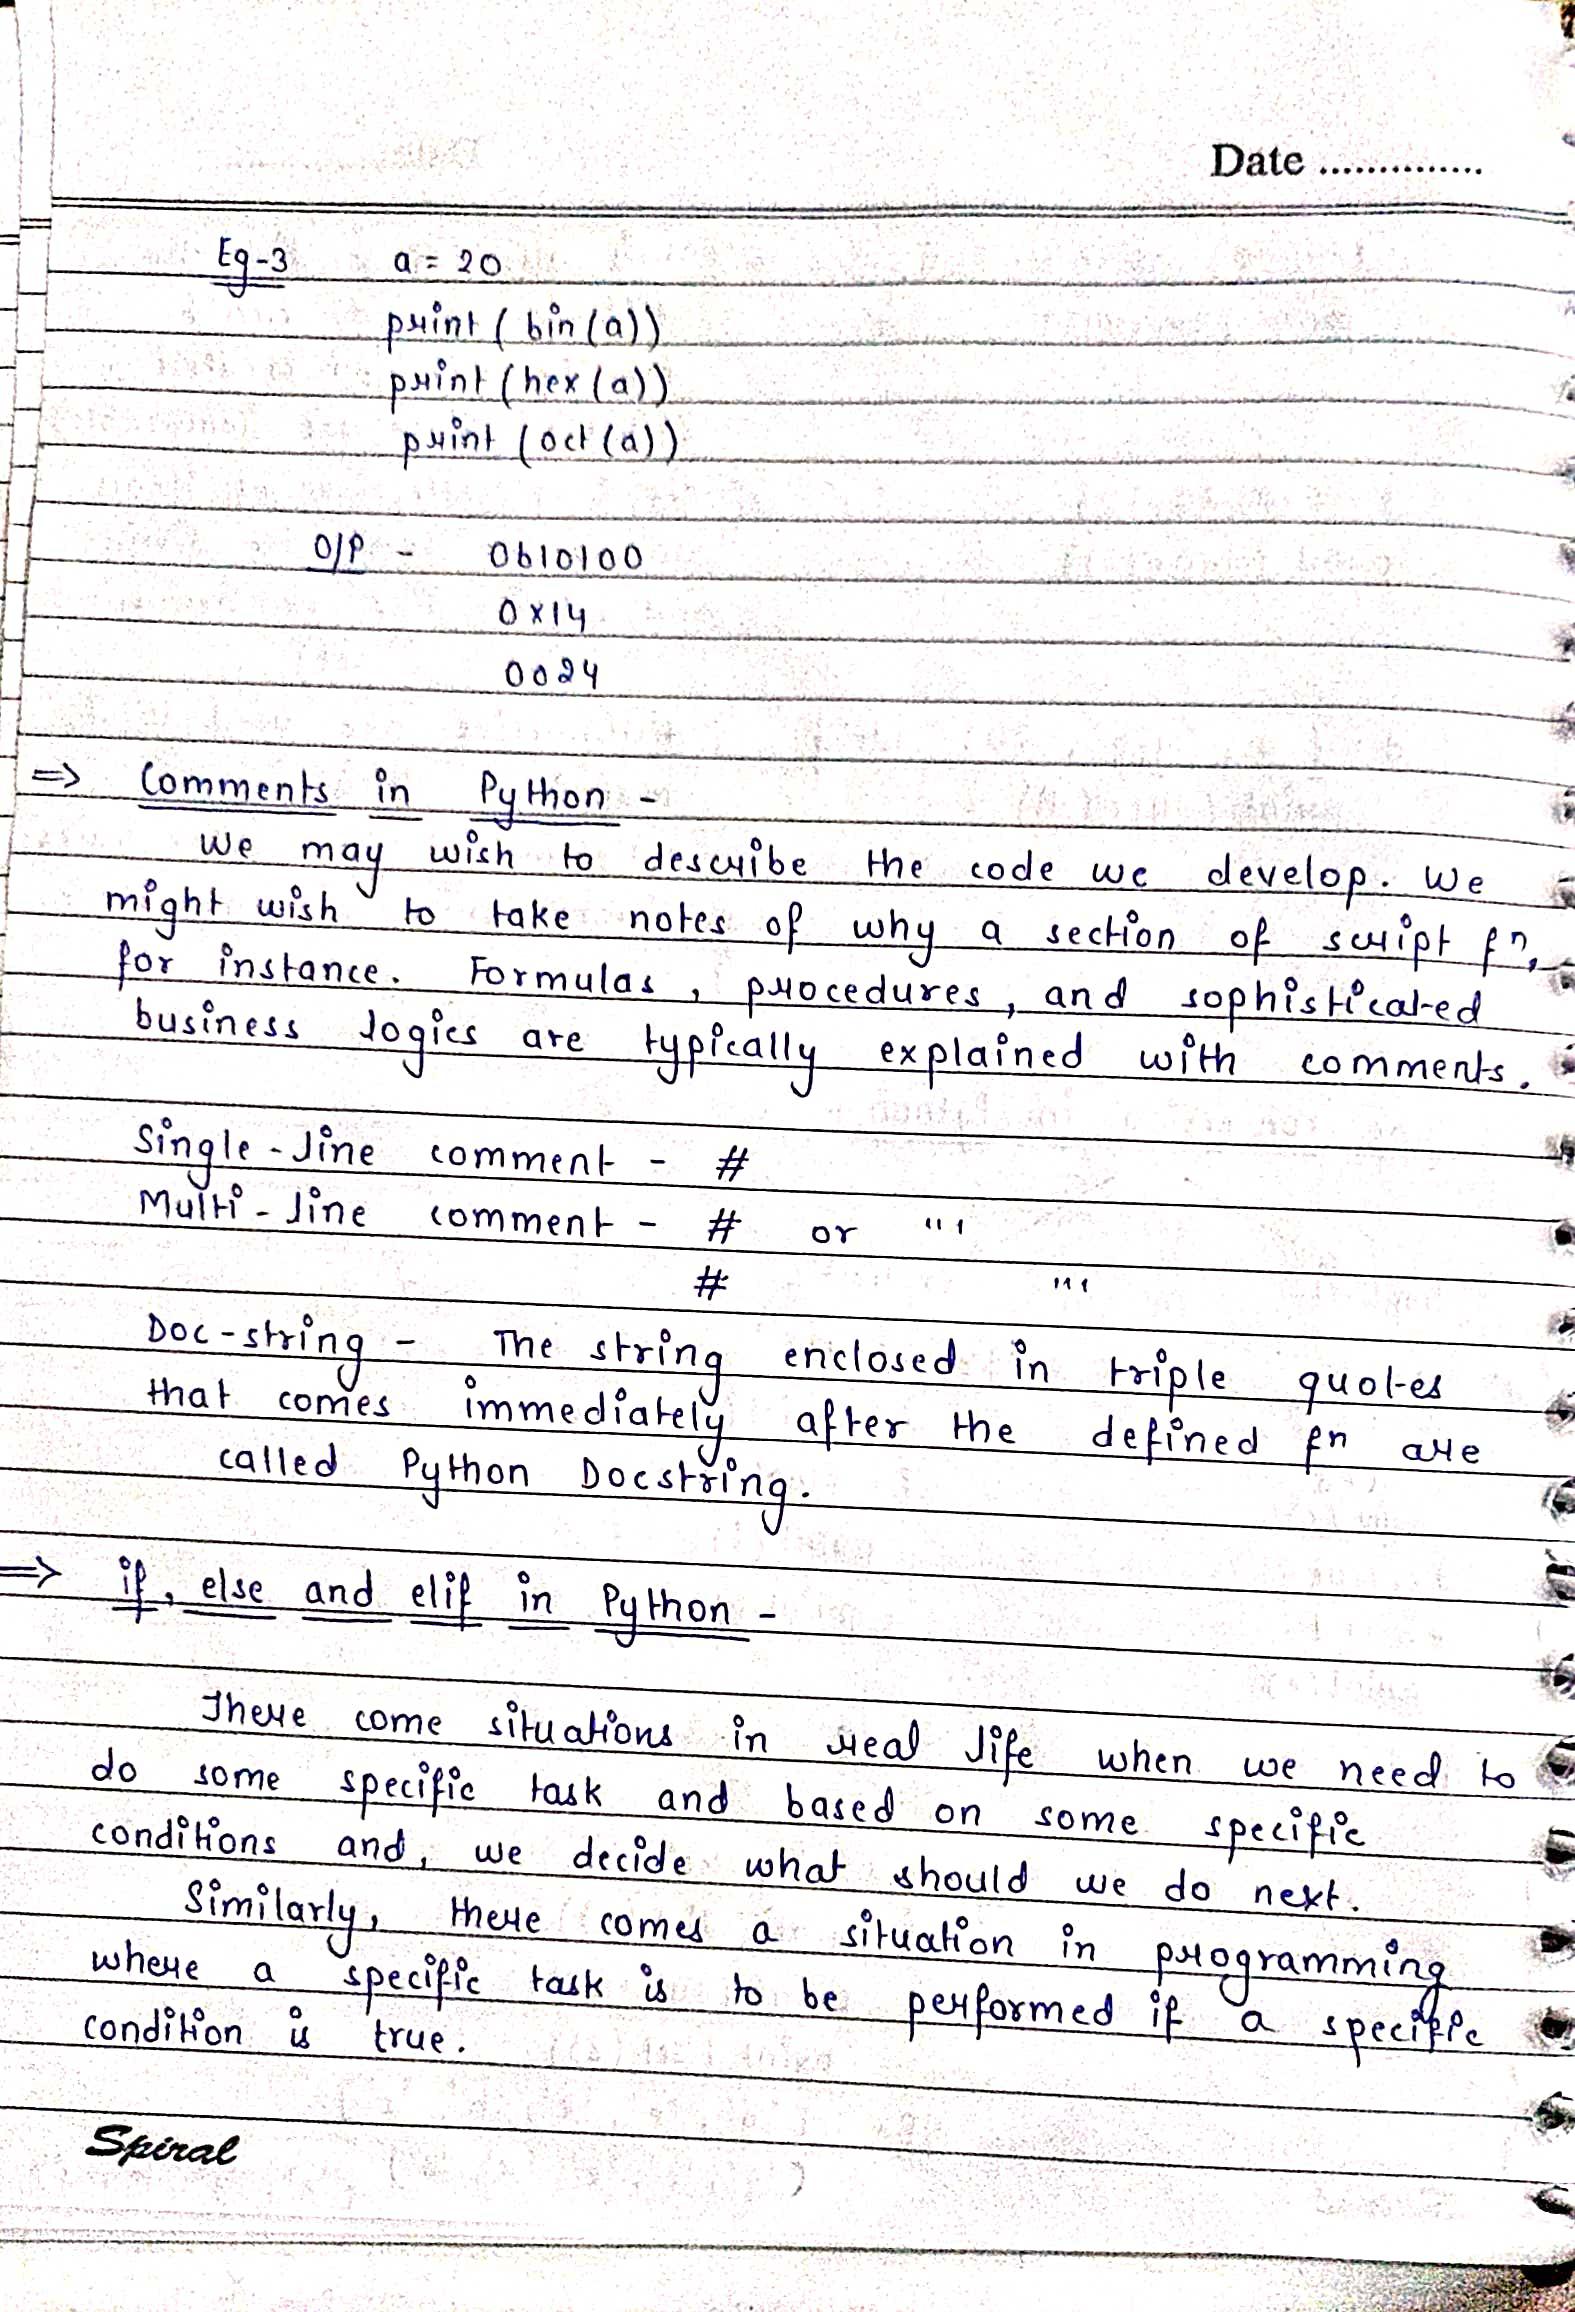 Date ...............
Eg-3 a = 20
print ( bin (a))
print (hex (a))
print (oct (a))
O/P - 0b10100
0x14
0o24
=> Comments in Python -
We may wish to describe the code we develop. We
might wish to take notes of why a section of script fn,
for instance. Formulas, procedures, and sophisticated
business logics are typically explained with comments.
Single-line comment - #
Multi-line comment - # or '''
# '''
Doc-string - The string enclosed in triple quotes
that comes immediately after the defined fn are
called Python Docstring.
=> if, else and elif in Python -
There come situations in real life when we need to
do some specific task and based on some specific
conditions and, we decide what should we do next.
Similarly, there comes a situation in programming
where a specific task is to be performed if a specific
condition is true.
Spiral